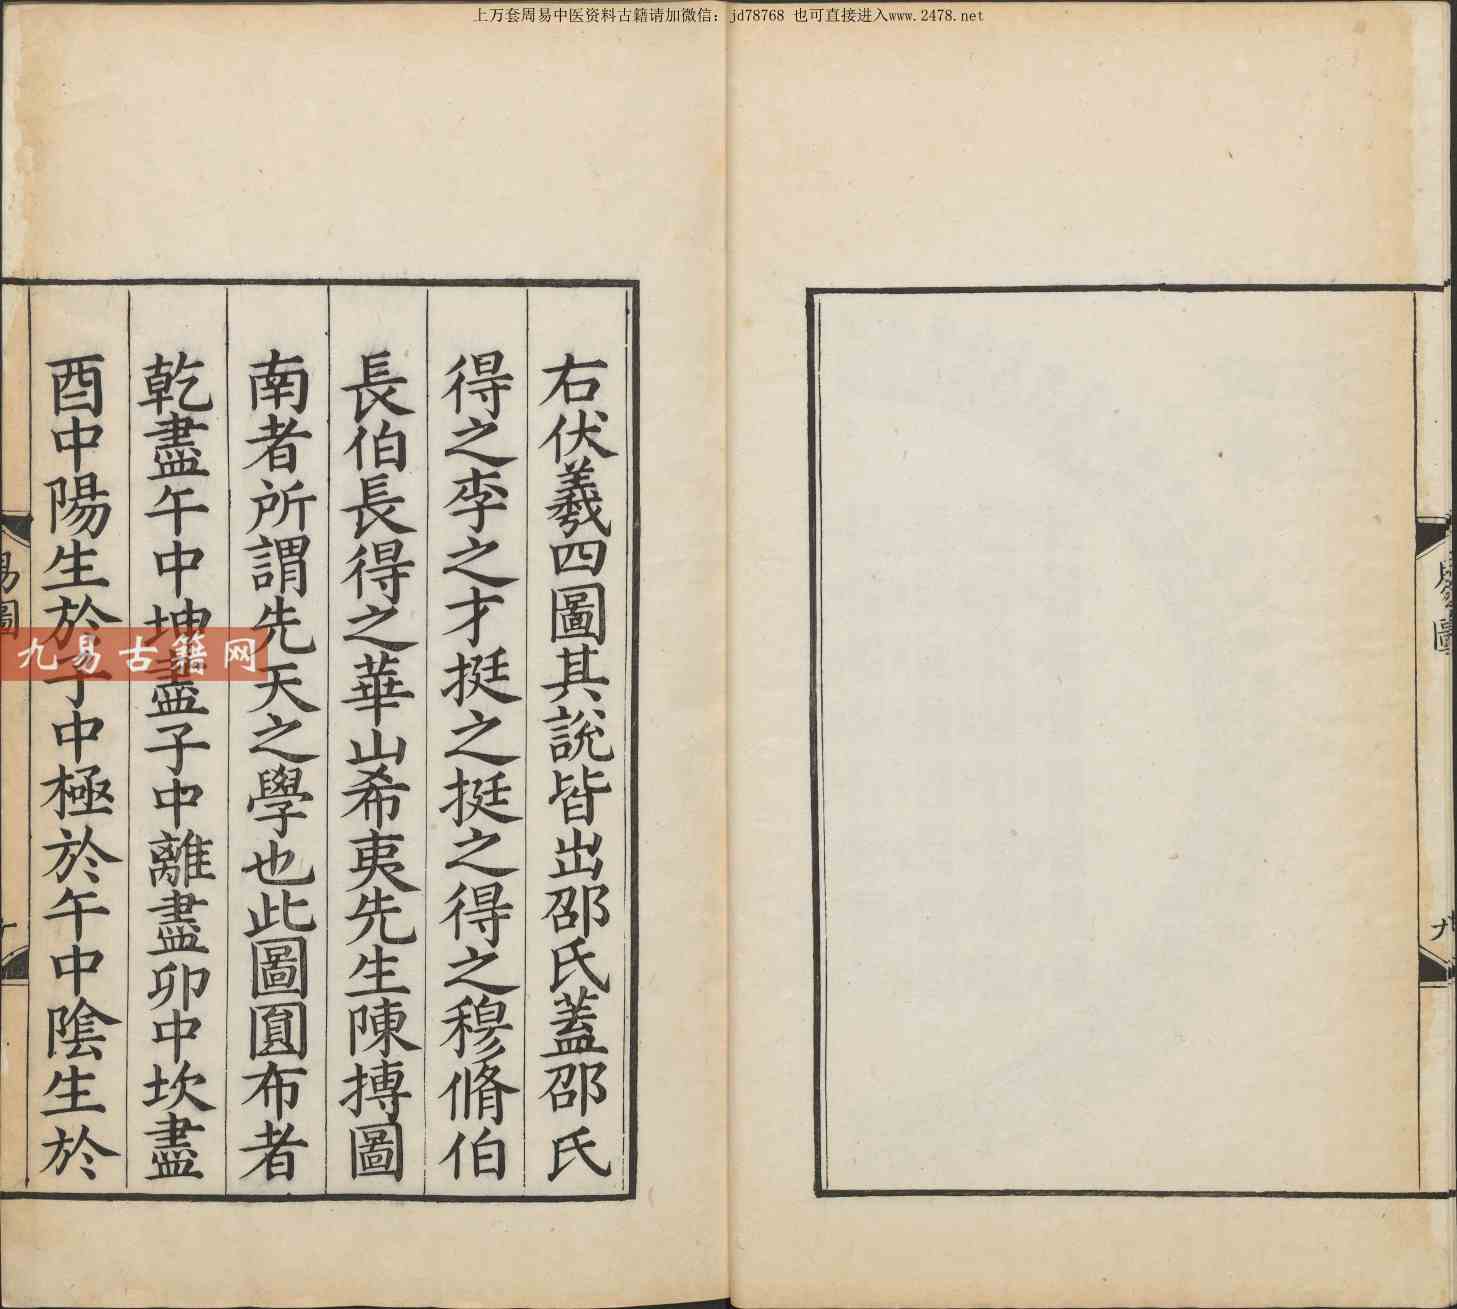 上万套周易中医资料古籍请加微信：jd78768 也可直接进入www.2478.net
右伏羲四圖其說皆出邵氏蓋邵氏
得之李之才挺之挺之得之穆脩伯
長伯長得之華山希夷先生陳摶圖
南者所謂先天之學也此圖圓布者
乾盡午中坤盡子中離盡卯中坎盡
酉中陽生於子中極於午中陰生於
易圖
九易古籍网
九